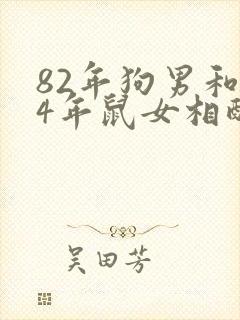 82年狗男和
4年鼠女相配
吴田芳